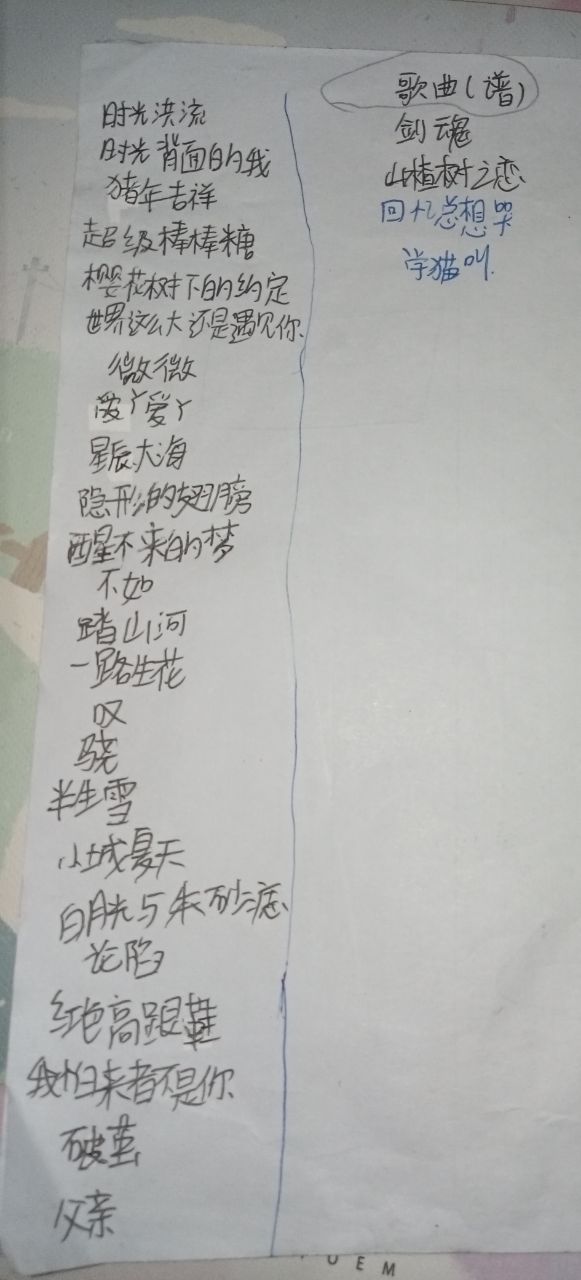 时光洪流
时光背面的我
猪年吉祥
超级棒棒糖
樱花树下的约定
世界这么大还是遇见你
微微
爱丫爱丫
星辰大海
隐形的翅膀
醒不来的梦
不如
踏山河
一路生花
叹
骁
半生雪
小城夏天
白月光与朱砂痣
沦陷
红色高跟鞋
我怕来者不是你
破茧
父亲
歌曲(谱)
剑魂
山楂树之恋
回忆总想哭
学猫叫
OEM